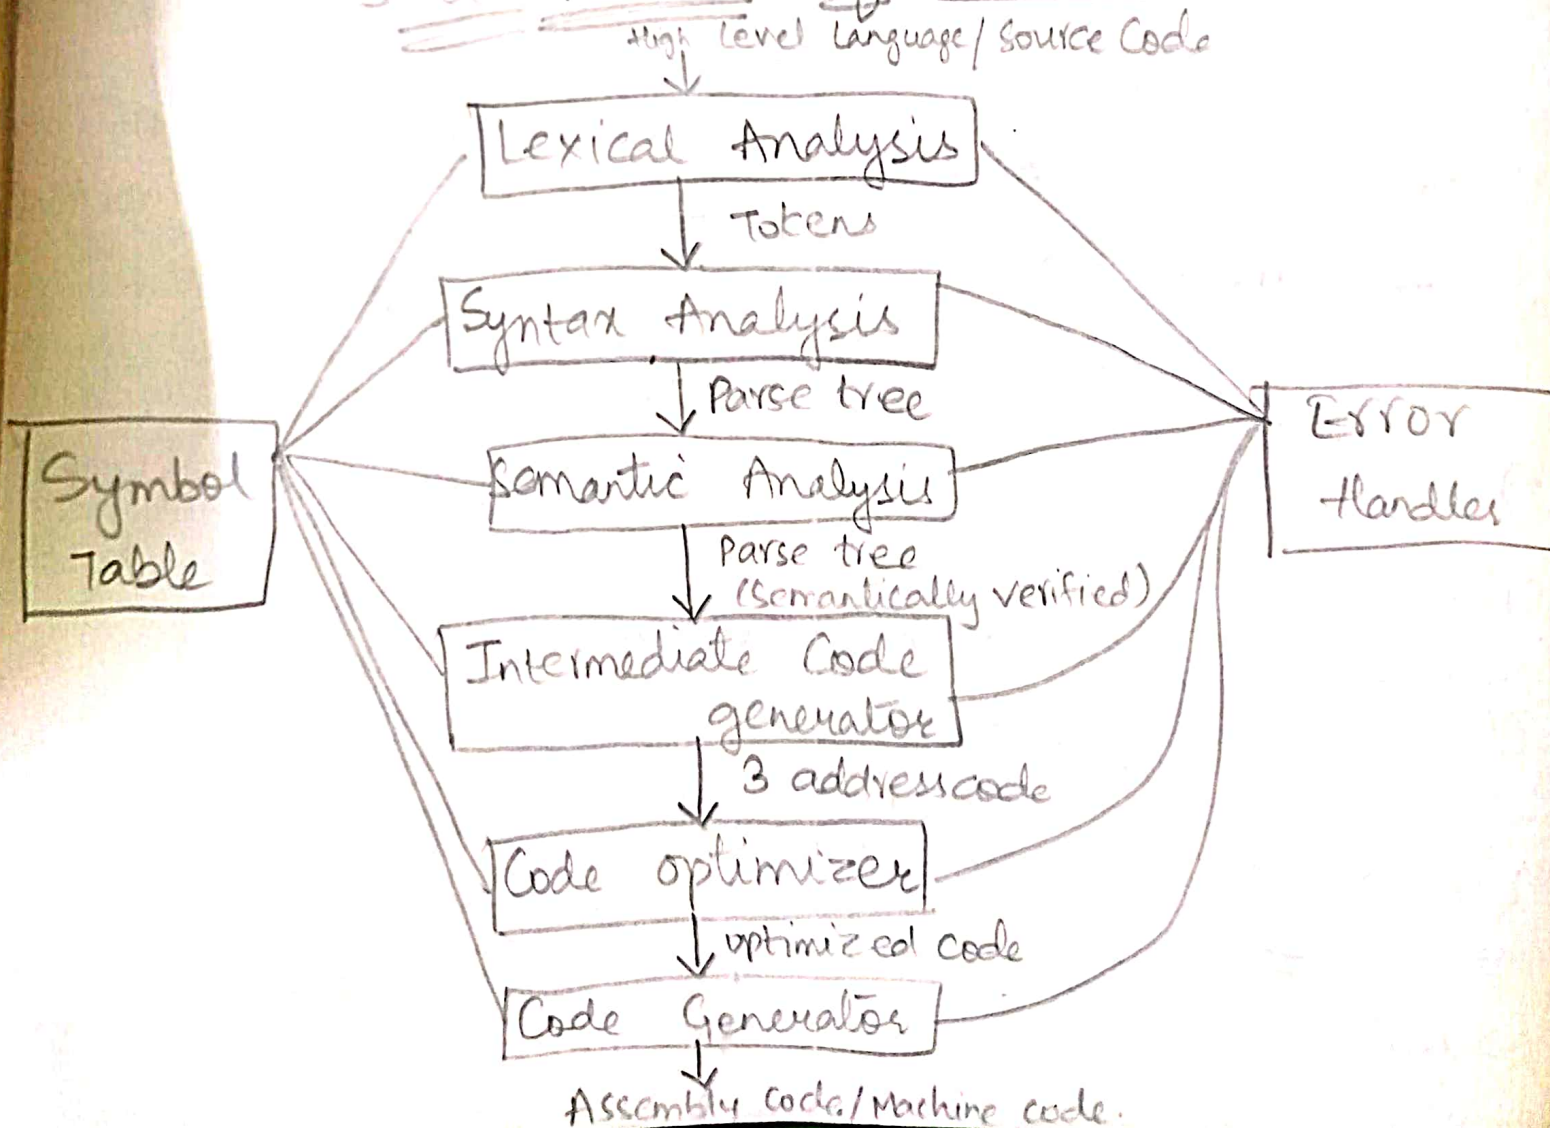 High Level Language/Source Code
Lexical Analysis
Tokens
Syntax Analysis
Parse tree
Error
Handler
Semantic Analysis
Symbol
Table
Parse tree
(Semantically verified)
Intermediate Code
generator
3 address code
Code optimizer
optimized code
Code Generator
Assembly code/Machine code.